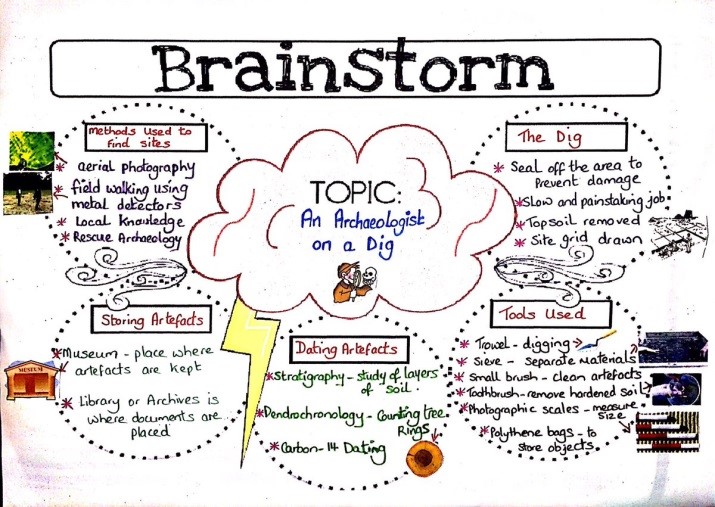 Brainstorm
Methods Used to
Find sites
* aerial photography
* field walking using
metal detectors
* Local knowledge
* Rescue Archaeology
TOPIC:
An Archaeologist
on a Dig
The Dig
* Seal off the area to
Prevent damage
* Slow and painstaking job
* Topsoil removed
* Site grid drawn
Storing Artefacts
* Museum - place where
artefacts are kept
MUSEUM
* Library or Archives is
where documents are
placed
Dating Artefacts
* Stratigraphy - study of layers
of soil.
* Dendrochronology - Counting tree
Rings
* Carbon-14 Dating
Tools Used
* Trowel - digging
* Sieve - Separate Materials
* Small brush - clean artefacts
* Toothbrush - remove hardened soil
* Photographic scales - measure
Size
* Polythene bags - to
store objects.